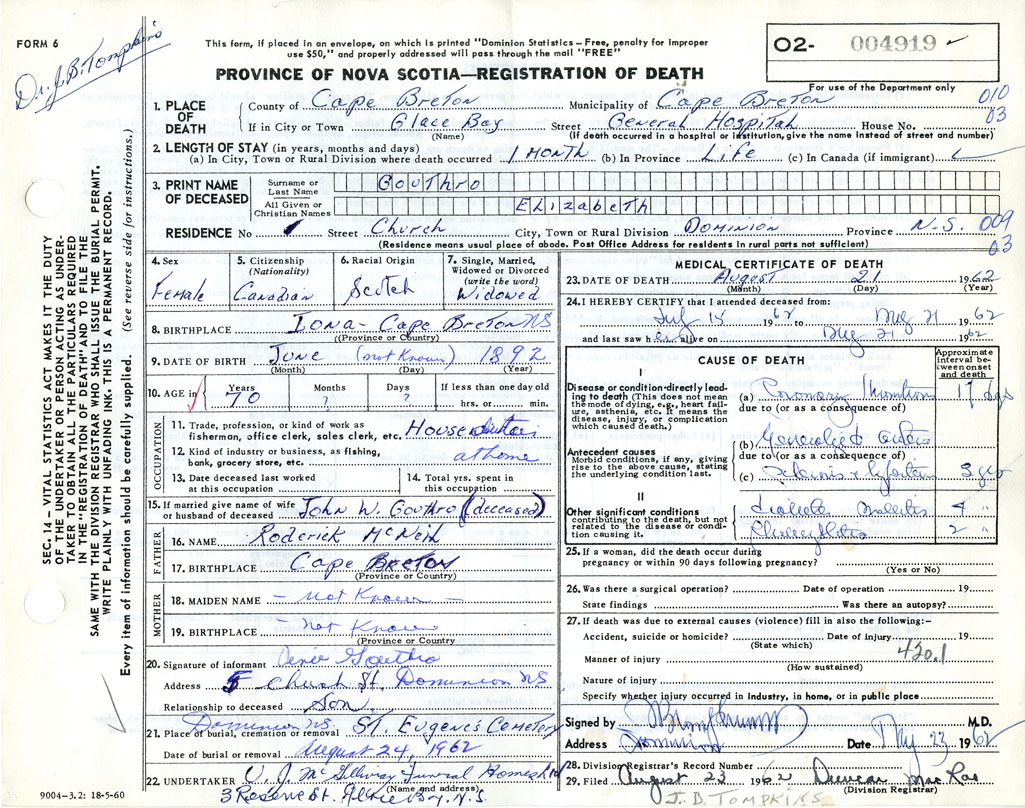 FORM 6
Dr. J. B. Tompkins
This form, if placed in an envelope, on which is printed "Dominion Statistics – Free, penalty for improper
use $50," and properly addressed will pass through the mail "FREE"
PROVINCE OF NOVA SCOTIA—REGISTRATION OF DEATH
O2- 004919
For use of the Department only
010
03
1. PLACE OF DEATH
County of Cape Breton Municipality of Cape Breton
If in City or Town Glace Bay Street General Hospital House No.
(Name) (If death occurred in a hospital or institution, give the name instead of street and number)
2. LENGTH OF STAY (in years, months and days)
(a) In City, Town or Rural Division where death occurred 1 MONTH (b) In Province LIFE (c) In Canada (if immigrant)
3. PRINT NAME OF DECEASED
Surname or Last Name GOUTHRO
All Given or Christian Names ELIZABETH
RESIDENCE No Street Church City, Town or Rural Division DOMINION Province N.S. 009
03
(Residence means usual place of abode. Post Office Address for residents in rural parts not sufficient)
4. Sex Female
5. Citizenship (Nationality) Canadian
6. Racial Origin Scotch
7. Single, Married, Widowed or Divorced (write the word) Widowed
8. BIRTHPLACE Iona - Cape Breton NS
(Province or Country)
9. DATE OF BIRTH June (not Known) 1892
(Month) (Day) (Year)
10. AGE in Years 70 Months ? Days ? If less than one day old hrs. or min.
OCCUPATION
11. Trade, profession, or kind of work as
fisherman, office clerk, sales clerk, etc. House
12. Kind of industry or business, as fishing,
bank, grocery store, etc. at home
13. Date deceased last worked
at this occupation
14. Total yrs. spent in
this occupation
15. If married give name of wife
or husband of deceased John W. Gouthro (deceased)
FATHER
16. NAME Roderick McNeil
17. BIRTHPLACE Cape BRETON
(Province or Country)
MOTHER
18. MAIDEN NAME - not Known -
19. BIRTHPLACE - not Known
(Province or Country
20. Signature of informant Gouthro
Address 5 Church St. Dominion NS
Relationship to deceased Son
Dominion NS. ST. EUGENE'S Cemetery
21. Place of burial, cremation or removal
Date of burial or removal August 24, 1962
22. UNDERTAKER V. J. McGillivray Funeral Homes Ltd
(Name and address)
3 Reserve St. Glace Bay. N.S.
9004–3.2: 18-5-60
MEDICAL CERTIFICATE OF DEATH
23. DATE OF DEATH August 21 1962
(Month) (Day) (Year)
24. I HEREBY CERTIFY that I attended deceased from:
July 15 1962 to Aug 21 1962
and last saw her alive on Aug 21 1962
CAUSE OF DEATH
Approximate interval between onset and death
I
Disease or condition directly leading to death (This does not mean
the mode of dying, e.g., heart failure, asthenia, etc. It means the
disease, injury, or complication
which caused death.)
(a) Coronary Thrombosis 17 dys
due to (or as a consequence of)
Antecedent causes
Morbid conditions, if any, giving
rise to the above cause, stating
the underlying condition last.
(b) Generalized
due to (or as a consequence of)
(c) 3 yrs
II
Other significant conditions
contributing to the death, but not
related to the disease or condition causing it.
Diabetes Mellitus 4 "
2 "
25. If a woman, did the death occur during
pregnancy or within 90 days following pregnancy?
(Yes or No)
26. Was there a surgical operation? Date of operation 19
State findings Was there an autopsy?
27. If death was due to external causes (violence) fill in also the following:-
Accident, suicide or homicide? Date of injury 19
(State which)
Manner of injury 420.1
(How sustained)
Nature of injury
Specify whether injury occurred in industry, in home, or in public place
Signed by M.D.
Address Dominion Date Aug 23 1962
28. Division Registrar's Record Number
29. Filed August 23 1962 Duncan MacRae
(Division Registrar)
J. B. TOMPKINS
SEC. 14– VITAL STATISTICS ACT MAKES IT THE DUTY
OF THE UNDERTAKER OR PERSON ACTING AS UNDERTAKER TO OBTAIN ALL THE PARTICULARS REQUIRED
IN THE "REGISTRATION OF DEATH" AND TO FILE THE
SAME WITH THE DIVISION REGISTRAR WHO SHALL ISSUE THE BURIAL PERMIT.
WRITE PLAINLY WITH UNFADING INK. THIS IS A PERMANENT RECORD.
Every item of information should be carefully supplied. (See reverse side for instructions.)